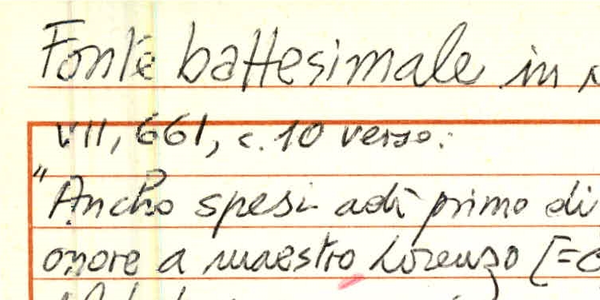 Fonte battesimale in
VII, 661, c. 10 verso:
"Ancho spesi adì primo di
onore a maestro Lorenzo [=